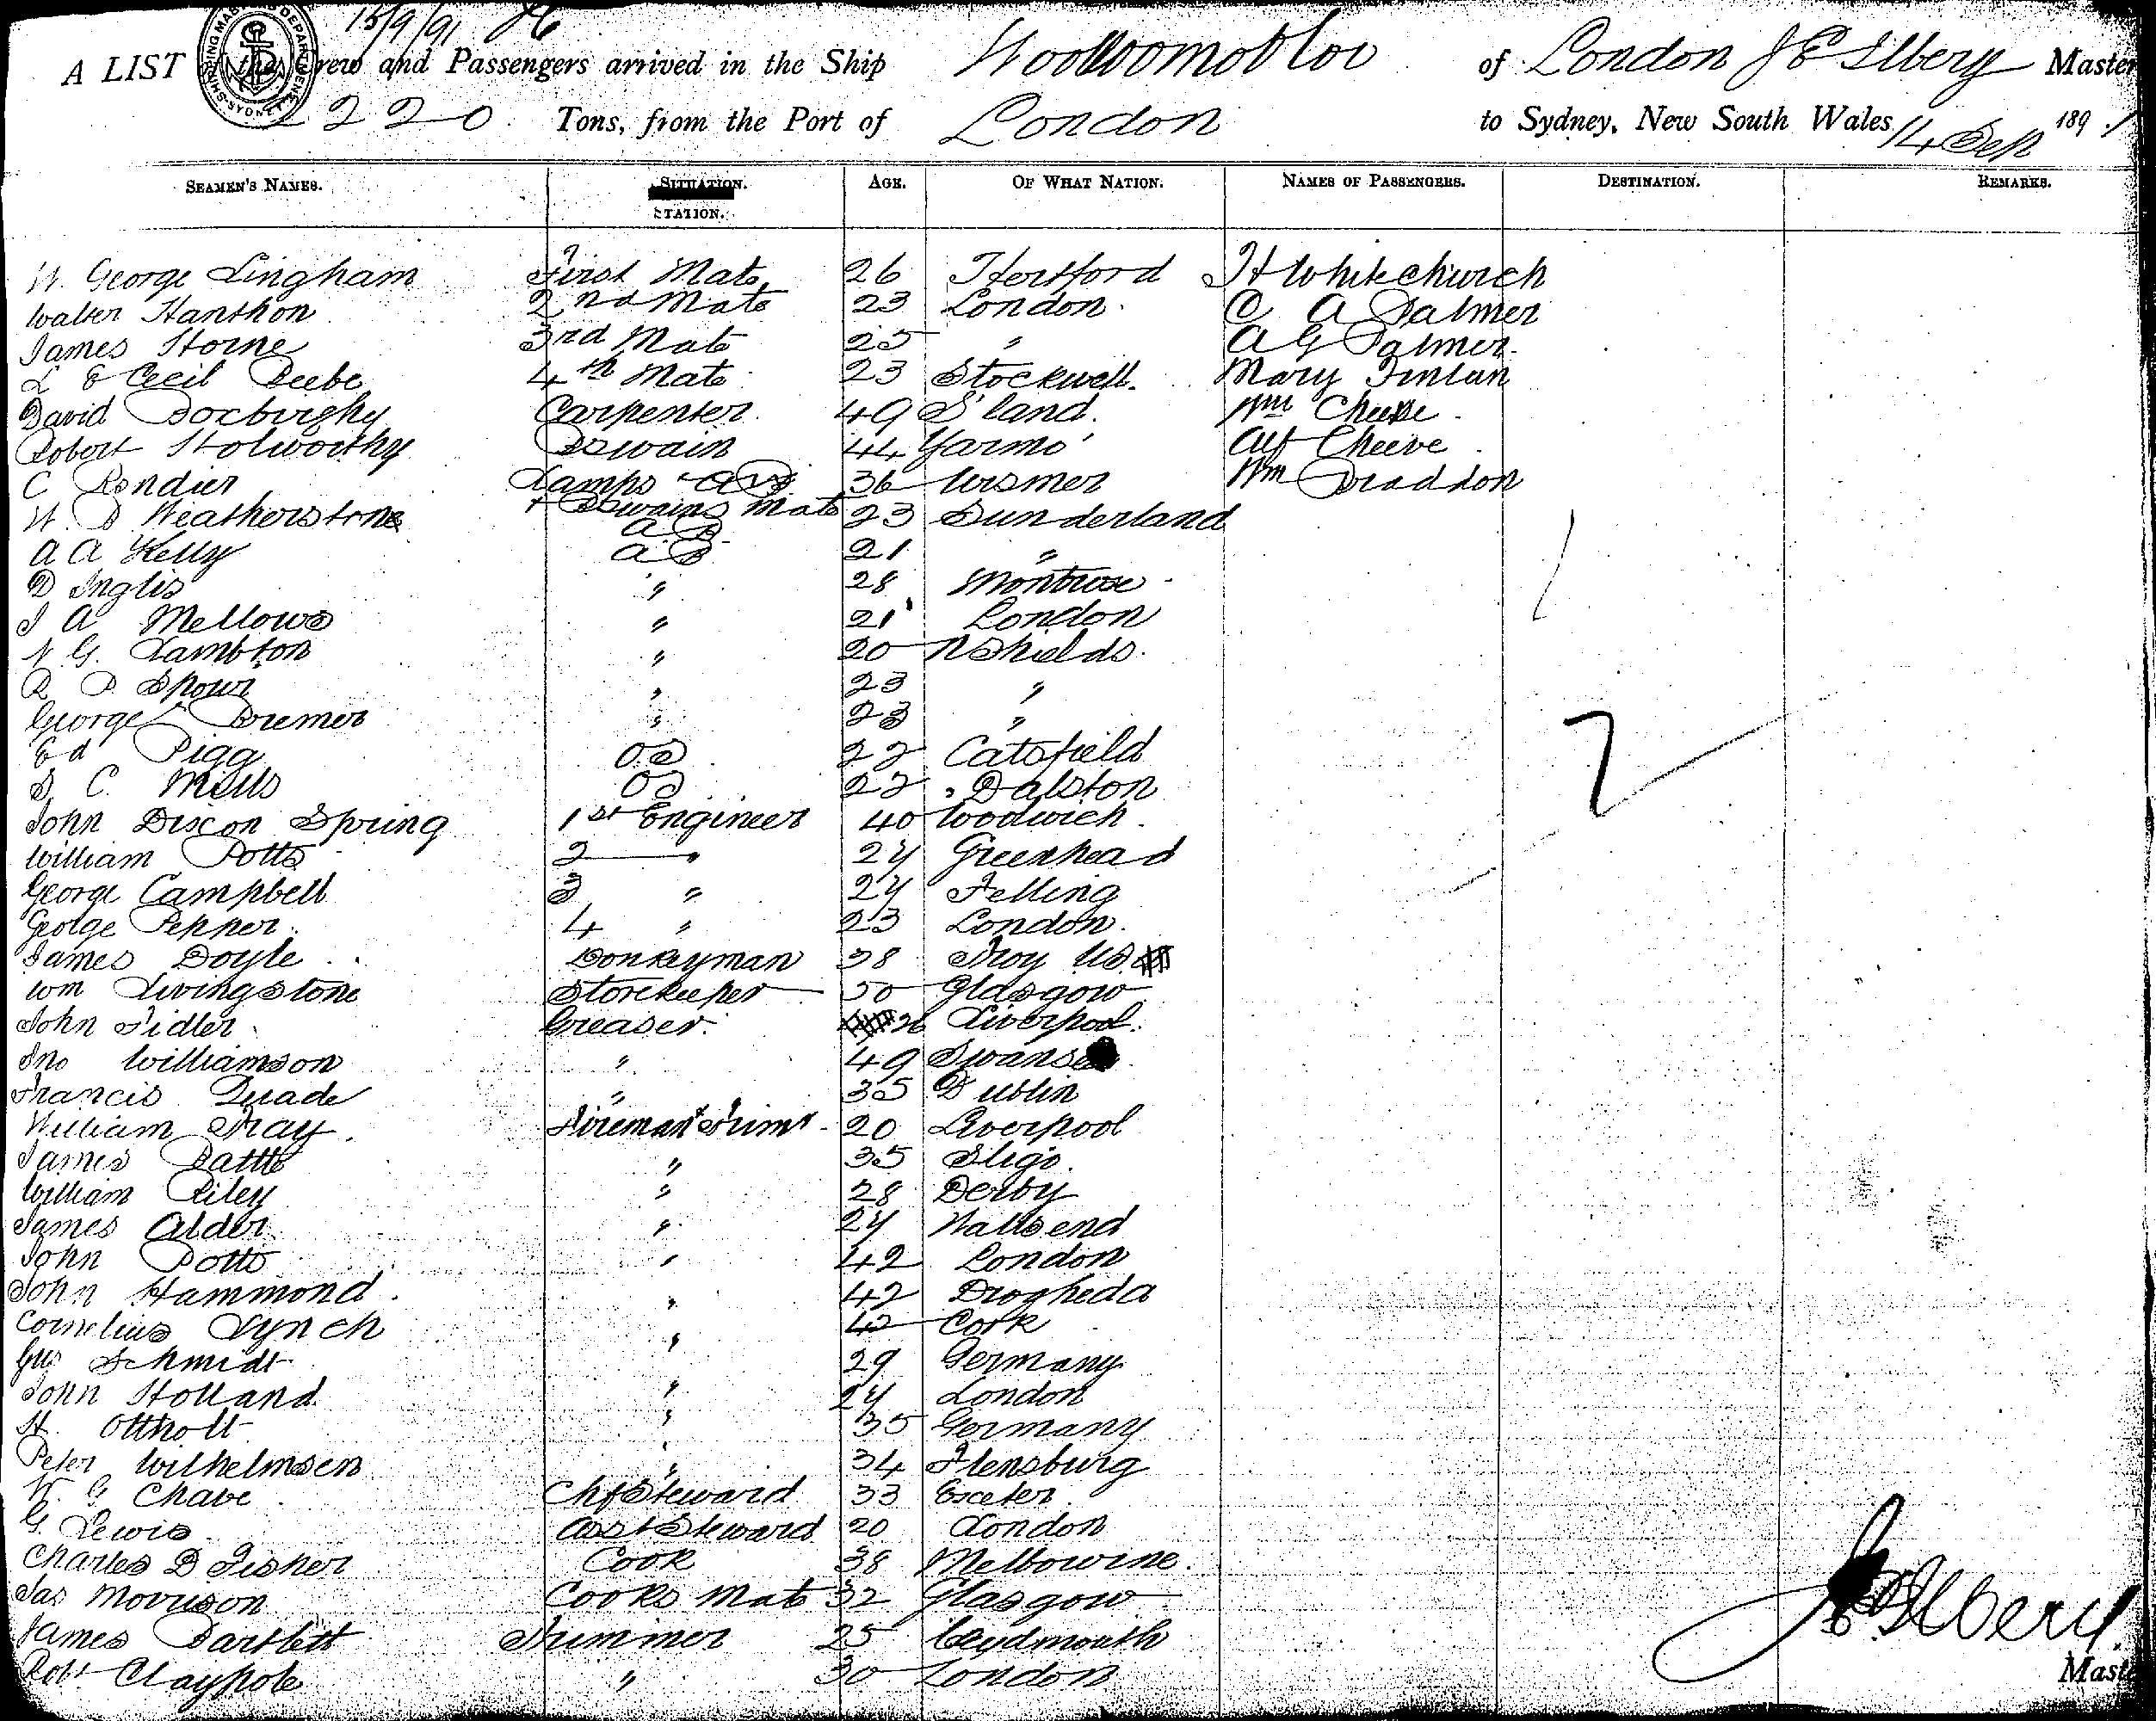 15/9/91
A LIST of the Crew and Passengers arrived in the Ship Woolloomooloo of London J E Ilbery Master
220 Tons, from the Port of London to Sydney, New South Wales, 14 Sep 1891
SEAMEN'S NAMES. SITUATION. AGE. OF WHAT NATION. NAMES OF PASSENGERS. DESTINATION. REMARKS.
STATION.
W. George Lingham First Mate 26 Hertford H Whitechurch
Walter Hanthon 2nd Mate 23 London C A Palmer
James Horne 3rd Mate 25 " A G Palmer
L E Cecil Beebe 4th Mate 23 Stockwell. Mary Finlan
David Carpenter 49 S'land. Wm Cheese
Robert Stolworthy Bswain 44 Yarmo' Alf Cheeve
C Rondier Lamps AB 36 Wismer Wm Braddon
W. D Weatherstone + Bswains Mate 23 Sunderland
AB
A A Kelly AB 21 "
D Inglis " 28 Montrose
J A Mellows " 21 London
N. G. Lambton " 20 N Shields.
R. P. Spour " 23 "
George Bremer " 23 "
Ed Pigg OS 22 Catsfield
S. C. Mills OS 22 Dalston
John Dixon Spring 1st Engineer 40 Woolwich
William Potts 2 " 24 Greenhead
George Campbell 3 " 24 Felling
George Pepper 4 " 23 London.
James Doyle Donkeyman 38 Troy US
Wm Livingstone Storekeeper 50 Glasgow
John Fidler Greaser. 26 Liverpool.
Jno Williamson " 49 Swansea
Francis Quade " 35 Dublin
William Gray Fireman & Trimr 20 Liverpool
James Battle " 35 Sligo.
William Riley " 28 Derby
James Alder " 24 Wallsend
John Potts " 42 London
John Hammond " 42 Drogheda
Cornelius Lynch " 42 Cork
Gus Schmidt " 29 Germany
John Holland " 24 London
H. Ottholt " 35 Germany
Peter Wilhelmsen " 34 Flensburg
W. G Chave Chf Steward 33 Exeter
G. Lewis Asst Steward 20 London
Charles D Fisher Cook 38 Melbourne.
Jas Morrison Cooks Mate 32 Glasgow
James Bartlett Trimmer 25
Robt Claypole " 30 London
J E Ilbery
Master